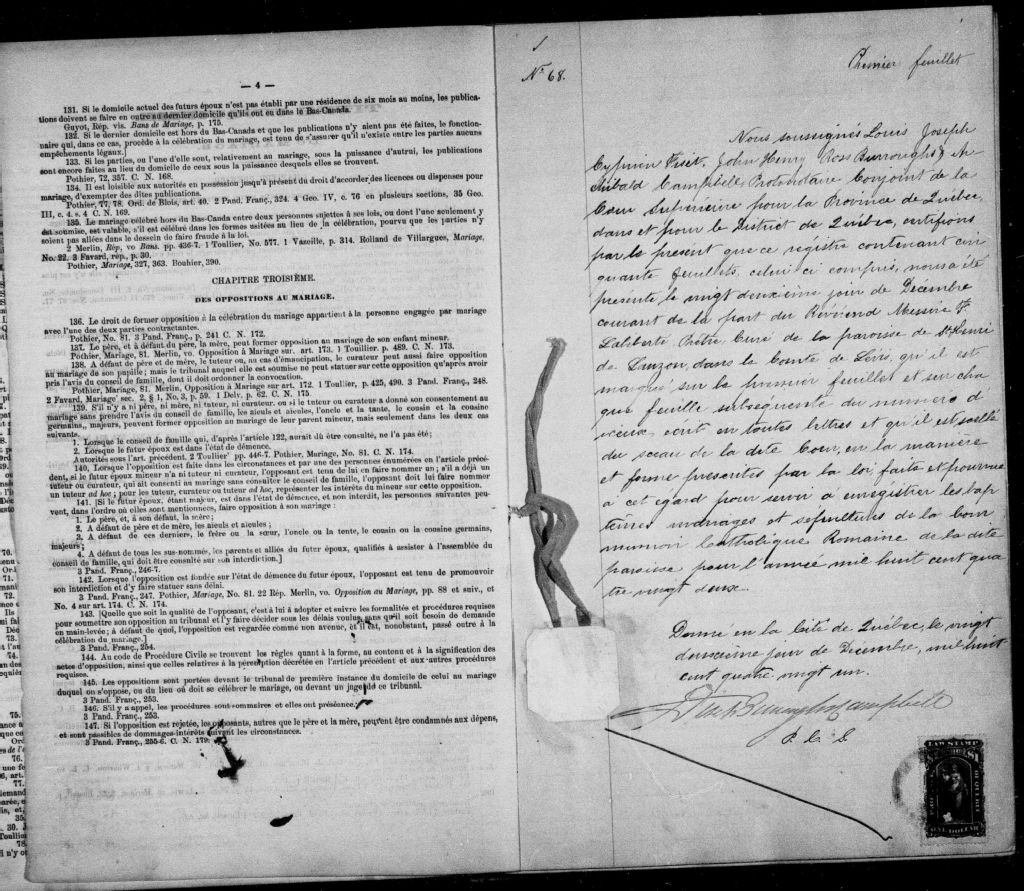 — 4 —
131. Si le domicile actuel des futurs époux n'est pas établi par une résidence de six mois au moins, les publica-
tions doivent se faire en outre au dernier domicile qu'ils ont eu dans le Bas-Canada.
Guyot, Rép. vis. Bans de Mariage, p. 175.
132. Si le dernier domicile est hors du Bas-Canada et que les publications n'y aient pas été faites, le fonction-
naire qui, dans ce cas, procède à la célébration du mariage, est tenu de s'assurer qu'il n'existe entre les parties aucuns
empêchements légaux.]
133. Si les parties, ou l'une d'elle sont, relativement au mariage, sous la puissance d'autrui, les publications
sont encore faites au lieu du domicile de ceux sous la puissance desquels elles se trouvent.
Pothier, 72, 357. C. N. 168.
134. Il est loisible aux autorités en possession jusqu'à présent du droit d'accorder des licences ou dispenses pour
mariage, d'exempter des dites publications.
Pothier, 77, 78. Ord. de Blois, art. 40. 2 Pand. Franç., 324. 4 Geo. IV, c. 76 en plusieurs sections, 35 Geo.
III, c. 4. s. 4 C. N. 169.
135. Le mariage célébré hors du Bas-Canda entre deux personnes sujettes à ses lois, ou dont l'une seulement y
est soumise, est valable, s'il est célébré dans les formes usitées au lieu de la célébration, pourvu que les parties n'y
soient pas allées dans le dessein de faire fraude à la loi.
2 Merlin, Rép, vo Bans. pp. 436-7. 1 Toullier, No. 577. 1 Vazeille, p. 314. Rolland de Villargues, Mariage,
No. 22. 3 Favard, rép., p. 30.
Pothier, Mariage, 327, 363. Bouhier, 390.
CHAPITRE TROISIÈME.
DES OPPOSITIONS AU MARIAGE.
136. Le droit de former opposition à la célébration du mariage appartient à la personne engagée par mariage
avec l'une des deux parties contractantes.
Pothier, No. 81. 3 Pand. Franç., p. 241 C. N. 172.
137. Le père, et à défaut du père, la mère, peut former opposition au mariage de son enfant mineur.
Pothier, Mariage, 81. Merlin, vo. Opposition à Mariage sur art. 173. 1 Toullier. p. 489. C. N. 173.
138. A défaut de père et de mère, le tuteur ou, au cas d'émancipation, le curateur peut aussi faire opposition
au mariage de son pupille; mais le tribunal auquel elle est soumise ne peut statuer sur cette opposition qu'après avoir
pris l'avis du conseil de famille, dont il doit ordonner la convocation.
Pothier, Mariage, 81. Merlin, Opposition à Mariage sur art. 172. 1 Toullier, p. 425, 490. 3 Pand. Franç., 248.
2 Favard, Mariage sec. 2, § 1, No. 3, p. 59. 1 Delv. p. 62. C. N. 175.
139. S'il n'y a ni père, ni mère, ni tuteur, ni curateur, ou si le tuteur ou curateur a donné son consentement au
mariage sans prendre l'avis du conseil de famille, les aïeuls et aïeules, l'oncle et la tante, le cousin et la cousine
germains, majeurs, peuvent former opposition au mariage de leur parent mineur, mais seulement dans les deux cas
suivants.
1. Lorsque le conseil de famille qui, d'après l'article 122, aurait dû être consulté, ne l'a pas été;
2. Lorsque le futur époux est dans l'état de démence.
Autorités sous l'art. précédent. 2 Toullier pp. 446-7. Pothier, Mariage, No. 81. C. N. 174.
140. Lorsque l'opposition est faite dans les circonstances et par une des personnes énumérées en l'article précé-
dent, si le futur époux mineur n'a ni tuteur ni curateur, l'opposant est tenu de lui en faire nommer un; s'il a déjà un
tuteur ou curateur, qui ait consenti au mariage sans consulter le conseil de famille, l'opposant doit lui faire nommer
un tuteur ad hoc; pour les tuteur, curateur ou tuteur ad hoc, représenter les intérêts du mineur sur cette opposition.
141. [Si le futur époux, étant majeur, est dans l'état de démence, et non interdit, les personnes suivantes peu-
vent, dans l'ordre où elles sont mentionnées, faire opposition à son mariage:
1. Le père, et, à son défaut, la mère;
2. A défaut de père et de mère, les aïeuls et aïeules;
3. A défaut de ces derniers, le frère ou la sœur, l'oncle ou la tente, le cousin ou la cousine germains,
majeurs;
4. A défaut de tous les sus-nommés, les parents et alliés du futur époux, qualifiés à assister à l'assemblée du
conseil de famille, qui doit être consulté sur son interdiction.]
3 Pand. Franç., 246-7.
142. Lorsque l'opposition est fondée sur l'état de démence du futur époux, l'opposant est tenu de promouvoir
son interdiction et d'y faire statuer sans délai.
3 Pand. Franç., 247. Pothier, Mariage, No. 81. 22 Rép. Merlin, vo. Opposition au Mariage, pp. 88 et suiv., et
No. 4 sur art. 174. C. N. 174.
143. [Quelle que soit la qualité de l'opposant, c'est à lui à adopter et suivre les formalités et procédures requises
pour soumettre son opposition au tribunal et l'y faire décider sous les délais voulus, sans qu'il soit besoin de demande
en main-levée; à défaut de quoi, l'opposition est regardée comme non avenue, et il est, nonobstant, passé outre à la
célébration du mariage.]
3 Pand. Franç., 254.
144. Au code de Procédure Civile se trouvent les règles quant à la forme, au contenu et à la signification des
actes d'opposition, ainsi que celles relatives à la péremption décrétée en l'article précédent et aux autres procédures
requises.
145. Les oppositions sont portées devant le tribunal de première instance du domicile de celui au mariage
duquel on s'oppose, ou du lieu où doit se célébrer le mariage, ou devant un juge de ce tribunal.
3 Pand. Franç., 253.
146. S'il y a appel, les procédures sont sommaires et elles ont préséance.
3 Pand. Franç., 253.
147. Si l'opposition est rejetée, les opposants, autres que le père et la mère, peuvent être condamnés aux dépens,
et sont passibles de dommages-intérêts suivant les circonstances.
3 Pand. Franç., 255-6. C. N. 179.
No. 68.
Premier feuillet
Nous soussignés Louis Joseph
Cyprien Fiset, John Henry Ross Burroughs & Ar
chibald Campbell Protonotaire Conjoint de la
Cour Supérieure pour la Province de Québec,
dans et pour le District de Québec, certifions
par le présent que ce registre contenant cin
quante feuillets, celui ci compris, nous a été
présenté le vingt deuxième jour de Décembre
courant de la part du Révérend Messire F
Laliberté Prêtre Curé de la paroisse de St Henri
de Lauzon, dans le Comté de Lévis, qu'il est
marqué sur le premier feuillet et sur cha
que feuille subséquente du numéro d
iceux écrit en toutes lettres et qu'il est scellé
du sceau de la dite Cour, en la manière
et forme prescrites par la loi, faite et pourvue
à cet égard pour servir à enregistrer les bap
têmes mariages et sépultures de la Com
munion Catholique Romaine de la dite
paroisse pour l'année mil huit cent qua
tre vingt deux.
Donné en la Cité de Québec, le vingt
deuxième jour de Décembre, mil huit
cent quatre vingt un.
Fiset Burroughs & Campbell
P. C. S.
LAW STAMP
$1
ONE DOLLAR